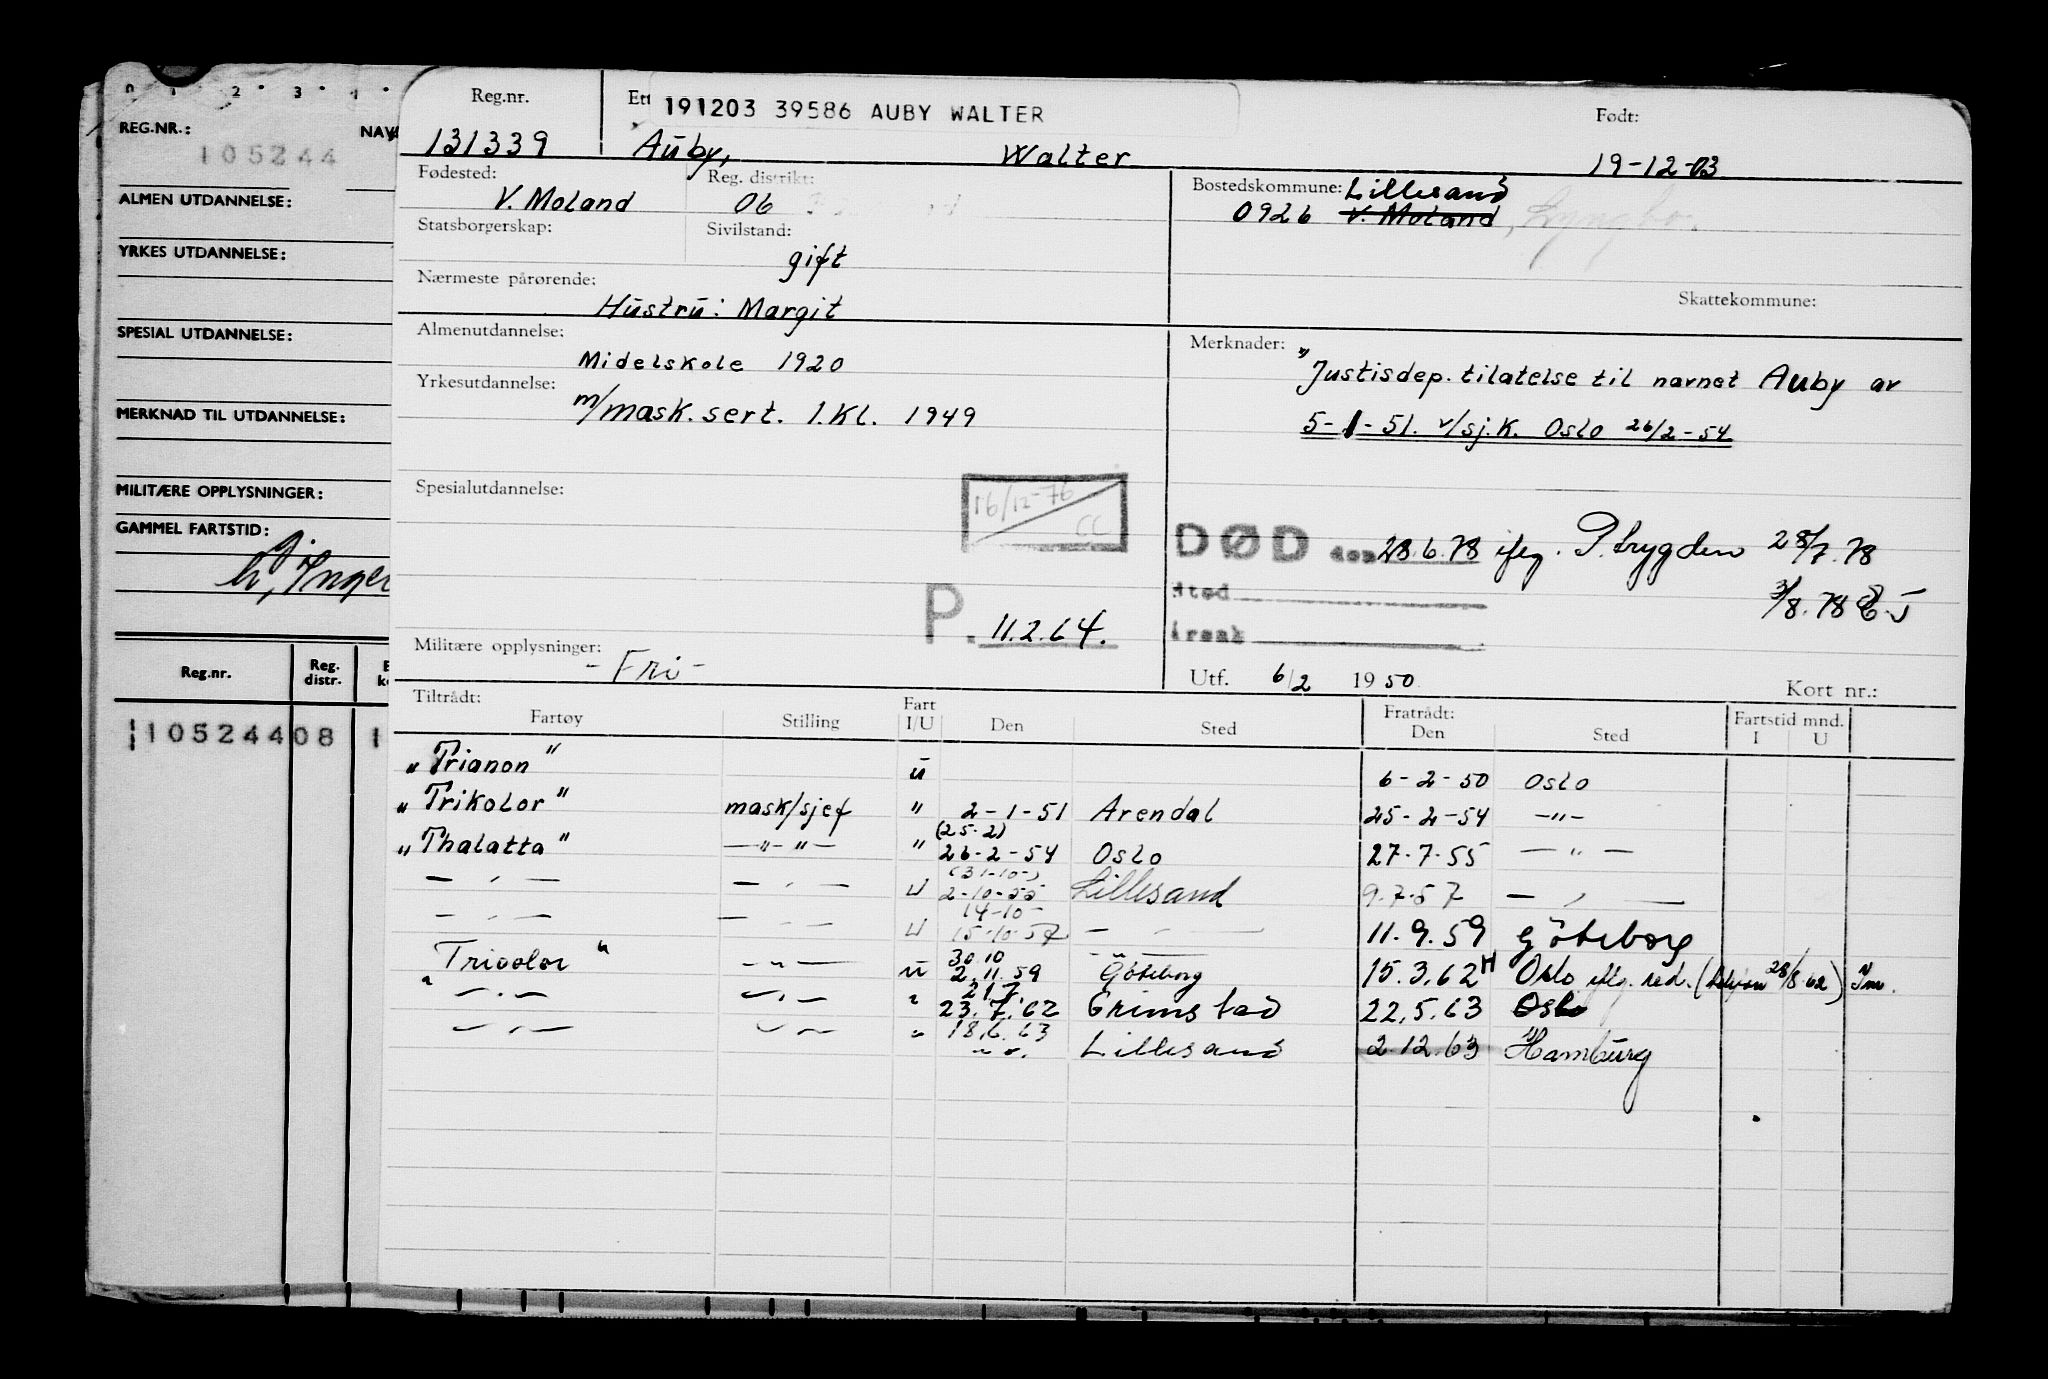 0 1 2 3
REG.NR.:
105244
ALMEN UTDANNELSE:
YRKES UTDANNELSE:
SPESIAL UTDANNELSE:
MERKNAD TIL UTDANNELSE:
MILITÆRE OPPLYSNINGER:
GAMMEL FARTSTID:
Reg.nr. Reg. distr.
10524408
Reg.nr. 191203 39586 AUBY WALTER Født:
131339 Auby, Walter 19-12-03
Fødested: Reg. distrikt: Bostedskommune: Lillesand
V. Moland 06 0926 V. Moland,
Statsborgerskap: Sivilstand:
gift
Nærmeste pårørende: Skattekommune:
Hustru: Margit
Almenutdannelse: Merknader:
Midelskole 1920
"Justisdep. tilatelse til navnet Auby av
Yrkesutdannelse:
m/mask. sert. 1. Kl. 1949
5-1-51. v/sj.K. Oslo 26/2-54
Spesialutdannelse:
16/12-76
CC
DØD den 28.6.78 iflg. P.trygden 28/7.78
sted 3/8.78
årsak
P. 11.2.64.
Militære opplysninger:
-Fri-
Utf. 6/2 1950 Kort nr.:
Tiltrådt: Fart Fratrådt: Fartstid mnd.
Fartøy Stilling I/U Den Sted Den Sted I U
"Trianon" ü 6-2-50 Oslo
"Trikolor" mask/sjef " 2-1-51 Arendal 25-2-54 -"-
(25-2)
"Thalatta" -"-"- " 26-2-54 Oslo 27.7.55 -"-
(31-10-)
-"- -"- U 2-10-55 Lillesand 9.7.57 -"-
14-10-
-"- -"- U 15-10-57 -"- 11.9.59 Göteborg
30 10
"Tricolor" -"- ü 2.11.59 Göteborg 15.3.62 Oslo iflg. red. ( 28/8.62)
21.7.
-"- -"- " 23.7.62 Grimstad 22.5.63 Oslo
-"- -"- " 18.6.63 Lillesand 2.12.63 Hamburg
-"-